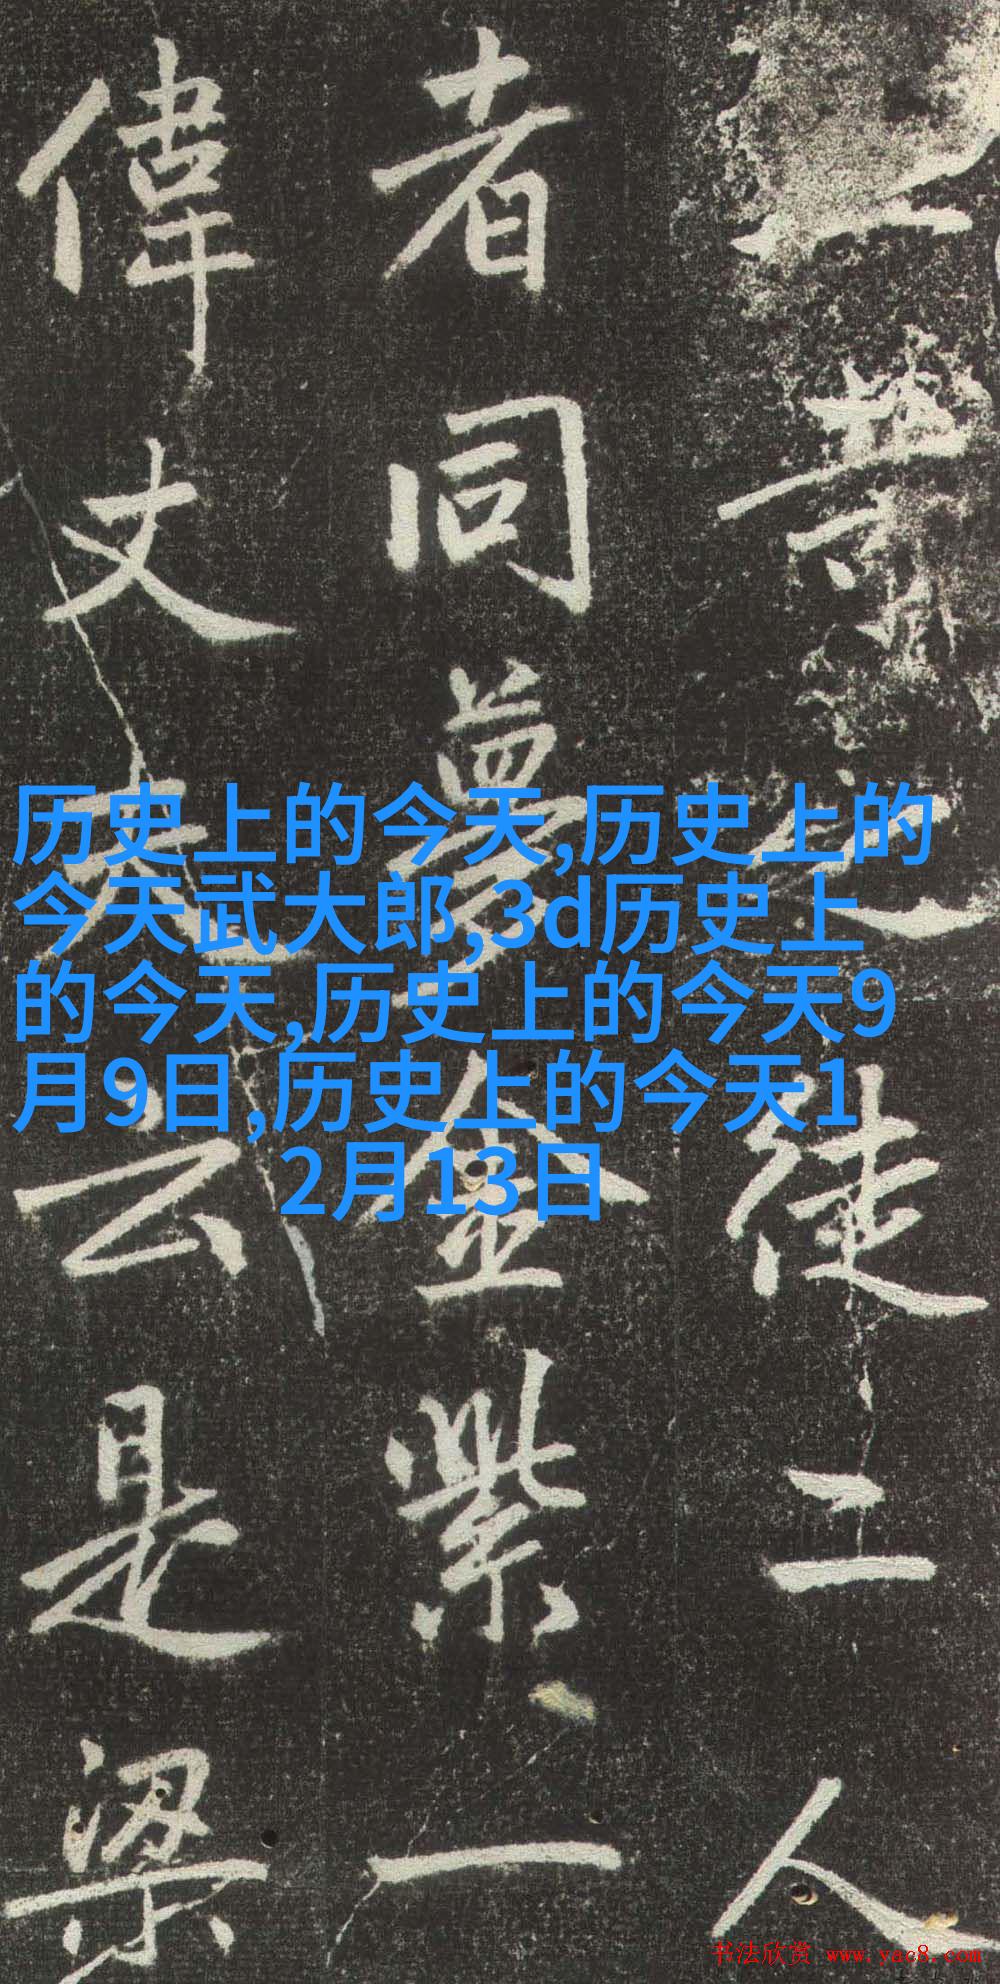 业
業之徒二人
者同夢金紫一
偉丈夫云是梁
历史上的今天,历史上的
今天武大郎,3d历史上
的今天,历史上的今天9
月9日,历史上的今天1
2月13日
书法欣赏 www.yac8.com